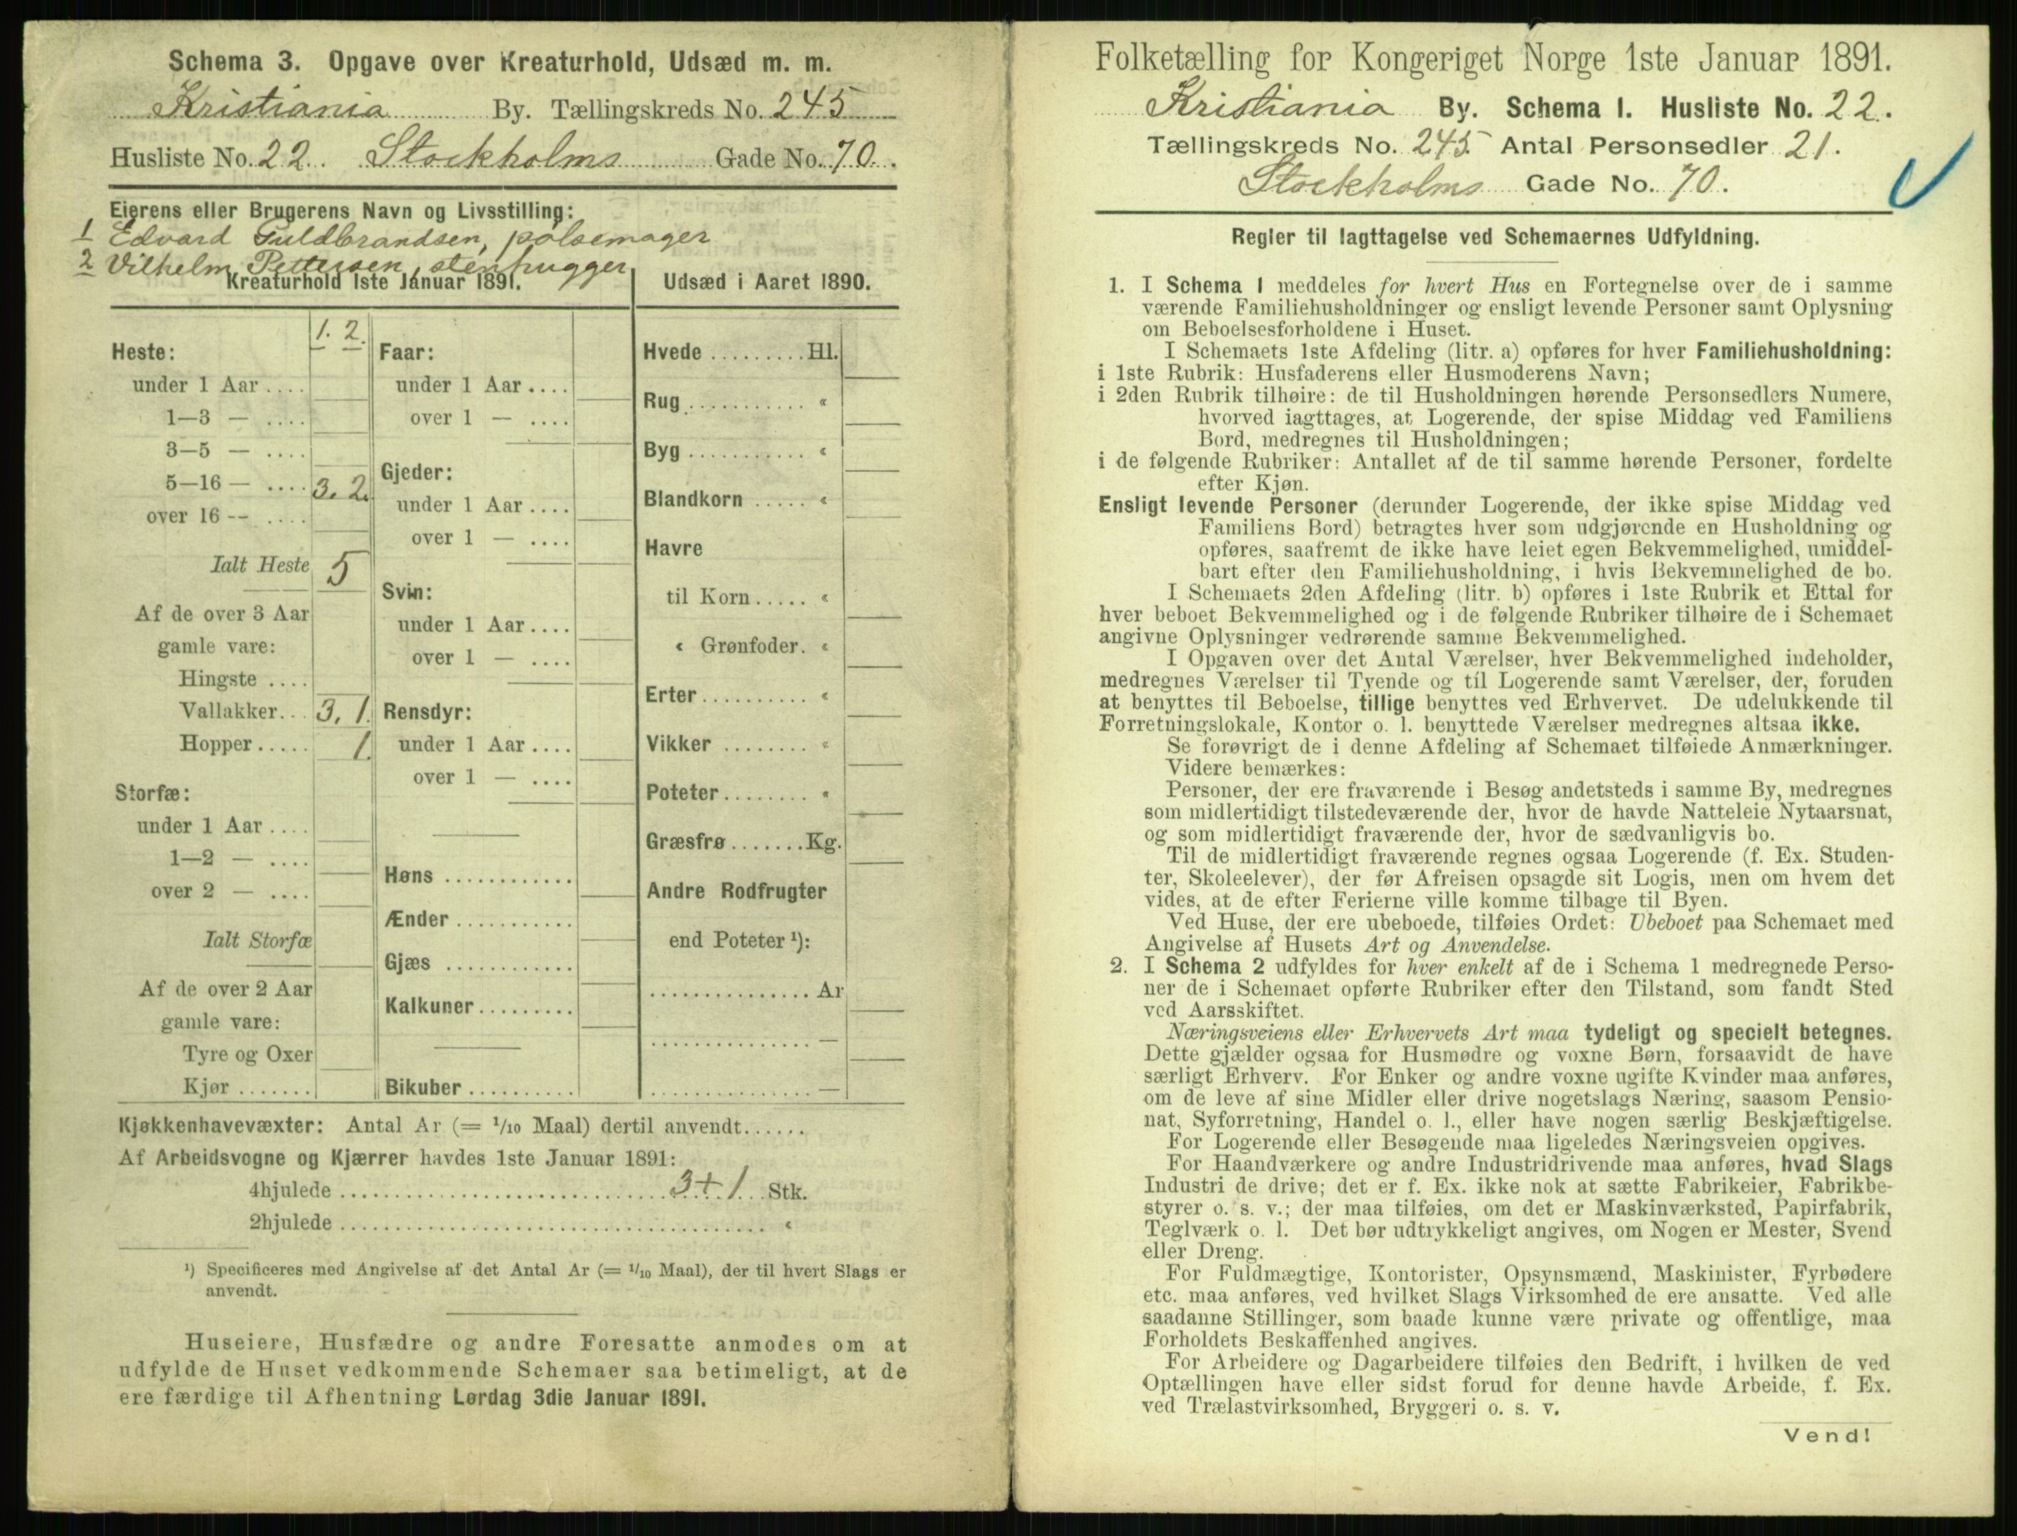 Schema 3. Opgave over Kreaturhold, Udsæd m. m.
Kristiania By. Tællingskreds No. 245
Husliste No. 22. Stockholms Gade No. 70.
Eierens eller Brugerens Navn og Livsstilling:
1 Edvard Guldbrandsen, pølsemager
2 Vilhelm Pettersen, stenhugger
Kreaturhold 1ste Januar 1891.
1. 2.
Heste:
under 1 Aar ....
1—3 — ....
3—5 — ....
5—16 — .... 3. 2.
over 16 -- ....
Ialt Heste 5
Af de over 3 Aar
gamle vare:
Hingste ....
Vallakker... 3. 1.
Hopper ..... 1.
Storfæ:
under 1 Aar ....
1—2 — ....
over 2 — ....
Ialt Storfæ
Af de over 2 Aar
gamle vare:
Tyre og Oxer
Kjør .......
Faar:
under 1 Aar ....
over 1 — ....
Gjeder:
under 1 Aar ....
over 1 — ....
Svin:
under 1 Aar ....
over 1 — ....
Rensdyr:
under 1 Aar ....
over 1 — ....
Høns ............
Ænder ...........
Gjæs ............
Kalkuner .........
Bikuber ..........
Udsæd i Aaret 1890.
Hvede ......... Hl.
Rug ........... «
Byg ........... «
Blandkorn ..... «
Havre
til Korn ..... «
« Grønfoder. «
Erter ......... «
Vikker ........ «
Poteter ........ «
Græsfrø ....... Kg.
Andre Rodfrugter
end Poteter ¹):
............... Ar
............... —
............... —
Kjøkkenhavevæxter: Antal Ar (= 1/10 Maal) dertil anvendt......
Af Arbeidsvogne og Kjærrer havdes 1ste Januar 1891:
4hjulede .............................. 3+1 Stk.
2hjulede ....................................... «
¹) Specificeres med Angivelse af det Antal Ar (= 1/10 Maal), der til hvert Slags er
anvendt.
Huseiere, Husfædre og andre Foresatte anmodes om at
udfylde de Huset vedkommende Schemaer saa betimeligt, at de
ere færdige til Afhentning Lørdag 3die Januar 1891.
Folketælling for Kongeriget Norge 1ste Januar 1891.
Kristiania By. Schema 1. Husliste No. 22.
Tællingskreds No. 245 Antal Personsedler 21.
Stockholms Gade No. 70.
Regler til Iagttagelse ved Schemaernes Udfyldning.
1. I Schema 1 meddeles for hvert Hus en Fortegnelse over de i samme
værende Familiehusholdninger og ensligt levende Personer samt Oplysning
om Beboelsesforholdene i Huset.
I Schemaets 1ste Afdeling (litr. a) opføres for hver Familiehusholdning:
i 1ste Rubrik: Husfaderens eller Husmoderens Navn;
i 2den Rubrik tilhøire: de til Husholdningen hørende Personsedlers Numere,
hvorved iagttages, at Logerende, der spise Middag ved Familiens
Bord, medregnes til Husholdningen;
i de følgende Rubriker: Antallet af de til samme hørende Personer, fordelte
efter Kjøn.
Ensligt levende Personer (derunder Logerende, der ikke spise Middag ved
Familiens Bord) betragtes hver som udgjørende en Husholdning og
opføres, saafremt de ikke have leiet egen Bekvemmelighed, umiddel-
bart efter den Familiehusholdning, i hvis Bekvemmelighed de bo.
I Schemaets 2den Afdeling (litr. b) opføres i 1ste Rubrik et Ettal for
hver beboet Bekvemmelighed og i de følgende Rubriker tilhøire de i Schemaet
angivne Oplysninger vedrørende samme Bekvemmelighed.
I Opgaven over det Antal Værelser, hver Bekvemmelighed indeholder,
medregnes Værelser til Tyende og til Logerende samt Værelser, der, foruden
at benyttes til Beboelse, tillige benyttes ved Erhvervet. De udelukkende til
Forretningslokale, Kontor o. l. benyttede Værelser medregnes altsaa ikke.
Se forøvrigt de i denne Afdeling af Schemaet tilføiede Anmærkninger.
Videre bemærkes:
Personer, der ere fraværende i Besøg andetsteds i samme By, medregnes
som midlertidigt tilstedeværende der, hvor de havde Natteleie Nytaarsnat,
og som midlertidigt fraværende der, hvor de sædvanligvis bo.
Til de midlertidigt fraværende regnes ogsaa Logerende (f. Ex. Studen-
ter, Skoleelever), der før Afreisen opsagde sit Logis, men om hvem det
vides, at de efter Ferierne ville komme tilbage til Byen.
Ved Huse, der ere ubeboede, tilføies Ordet: Ubeboet paa Schemaet med
Angivelse af Husets Art og Anvendelse.
2. I Schema 2 udfyldes for hver enkelt af de i Schema 1 medregnede Perso-
ner de i Schemaet opførte Rubriker efter den Tilstand, som fandt Sted
ved Aarsskiftet.
Næringsveiens eller Erhvervets Art maa tydeligt og specielt betegnes.
Dette gjælder ogsaa for Husmødre og voxne Børn, forsaavidt de have
særligt Erhverv. For Enker og andre voxne ugifte Kvinder maa anføres,
om de leve af sine Midler eller drive nogetslags Næring, saasom Pensio-
nat, Syforretning, Handel o. l., eller have nogen særlig Beskjæftigelse.
For Logerende eller Besøgende maa ligeledes Næringsveien opgives.
For Haandværkere og andre Industridrivende maa anføres, hvad Slags
Industri de drive; det er f. Ex. ikke nok at sætte Fabrikeier, Fabrikbe-
styrer o. s. v.; der maa tilføies, om det er Maskinværksted, Papirfabrik,
Teglværk o. l. Det bør udtrykkeligt angives, om Nogen er Mester, Svend
eller Dreng.
For Fuldmægtige, Kontorister, Opsynsmænd, Maskinister, Fyrbødere
etc. maa anføres, ved hvilket Slags Virksomhed de ere ansatte. Ved alle
saadanne Stillinger, som baade kunne være private og offentlige, maa
Forholdets Beskaffenhed angives.
For Arbeidere og Dagarbeidere tilføies den Bedrift, i hvilken de ved
Optællingen have eller sidst forud for denne havde Arbeide, f. Ex.
ved Trælastvirksomhed, Bryggeri o. s. v.
Vend!